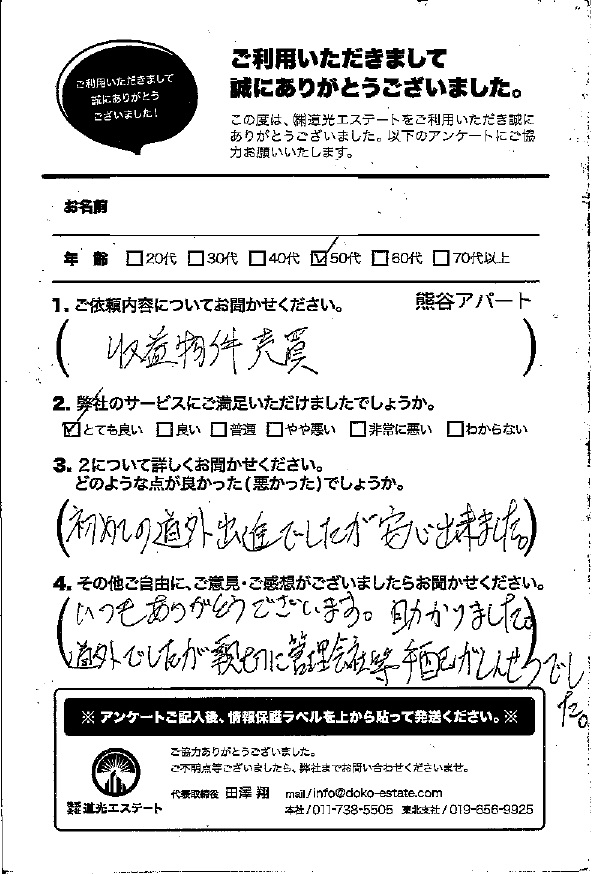 ご利用いただきまして
誠にありがとう
ございました!
ご利用いただきまして
誠にありがとうございました。
この度は、㈱道光エステートをご利用いただき誠に
ありがとうございました。以下のアンケートにご協
力お願いいたします。
お名前
年 齢 □20代 □30代 □40代 ☑50代 □60代 □70代以上
1. ご依頼内容についてお聞かせください。 熊谷アパート
( 収益物件売買 )
2. 弊社のサービスにご満足いただけましたでしょうか。
☑とても良い □良い □普通 □やや悪い □非常に悪い □わからない
3. 2について詳しくお聞かせください。
どのような点が良かった(悪かった)でしょうか。
(初めての道外出進でしたが安心出来ました。)
4. その他ご自由に、ご意見・ご感想がございましたらお聞かせください。
(いつもありがとうございます。助かりました。)
道外でしたが親切に管理会社等手配がしんせつでし
た。
※ アンケートご記入後、情報保護ラベルを上から貼って発送ください。※
ご協力ありがとうございました。
ご不明点等ございましたら、弊社までお問い合わせくださいませ。
代表取締役 田澤 翔 mail/info@doko-estate.com
株式会社 道光エステート 本社/011-738-5505 東北支社/019-656-9925